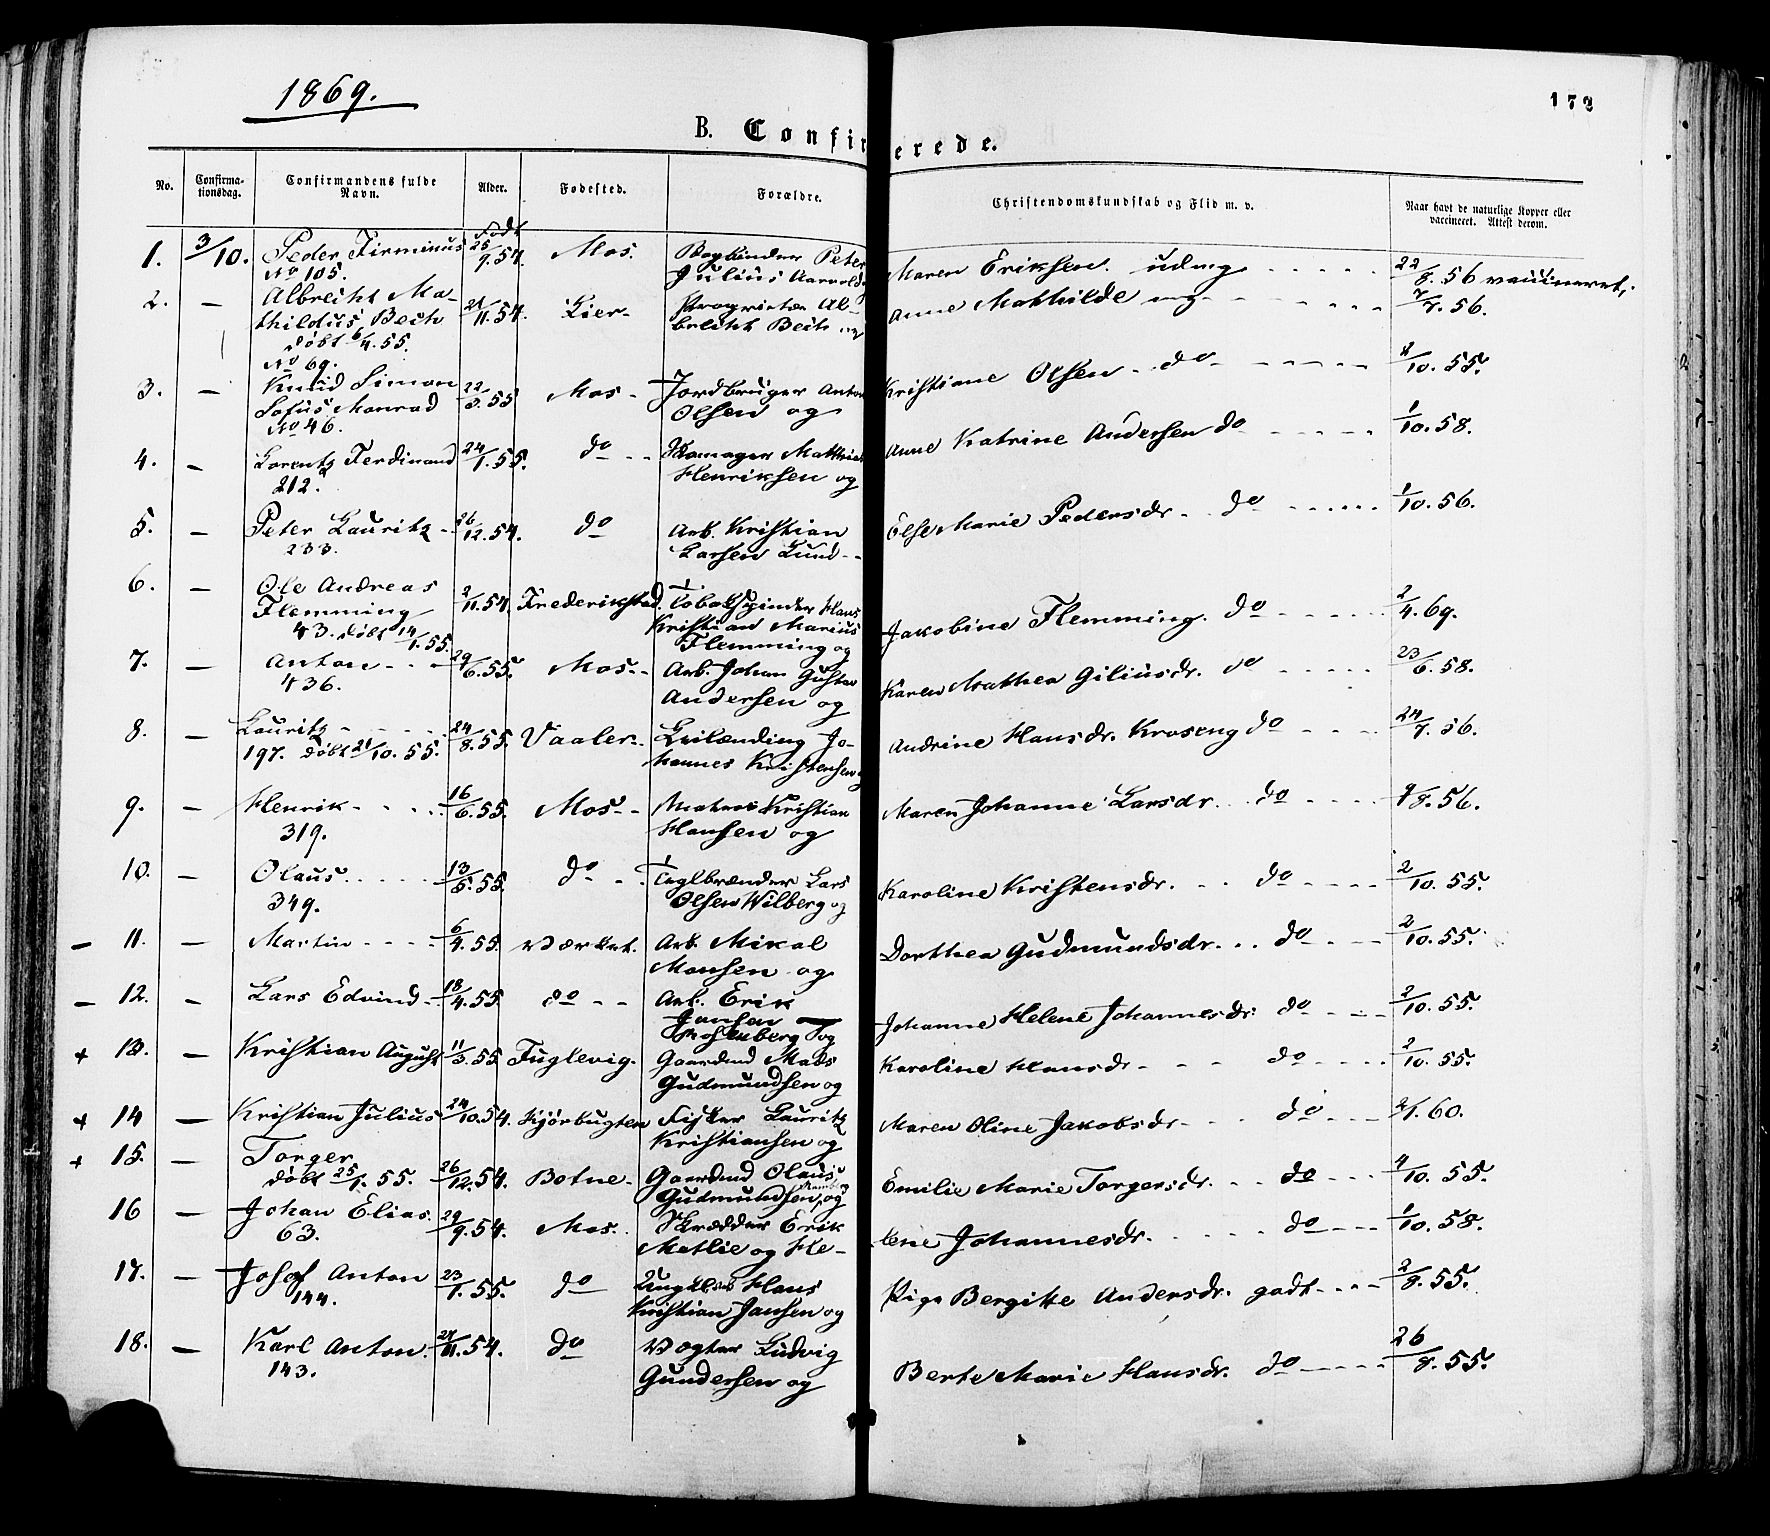 1869.
172
B. Confirmerede.
No. Confirmationsdag. Confirmandens fulde Navn. Alder. Fødested. Forældre. Christendomskundskab og Flid m. v. Naar havt de naturlige Kopper eller vaccineret. Attest derom.
Født
1. 3/10. Peder Firminus 25/9.54. Mos. Bogbinder Peter Maren Eriksen. udmg 22/8.56 vaccineret.
No 105. Julius
2. — Albrecht Ma- 21/11.54. Lier Proprietær Al- Anne Mathilde mg 7/7.56.
thildus Bech brecht Bech og
døbt 6/4.55.
No 69.
3. — Knud Simon 22/3.55 Mos Jordbruger Anton Kristiane Olsen do 2/10.55.
Sofus Monrad Olsen og
No 46.
4. — Lorentz Ferdinand 24/1.55. do Skomager Mathias Anne Katrine Andersen do 1/10.58.
212. Henriksen og
5. — Peter Lauritz 26/12.54. do Arb. Kristian Else Marie Pedersdr. do 1/10.56.
233. Larsen Lund
6. — Ole Andreas 2/11.54. Frederikstad. Tobakspinder Hans Jakobine Flemming. do 2/4.69.
Flemming Kristian Marius
43. døbt 14/1.55. Flemming og
7. — Anton 29/6.55. Mos Arb. Johan Gustav Karen Mathea Giliusdr. do 23/6.58.
436. Andersen og
8. — Lauritz 24/8.55. Vaaler Leilænding Jo- Andrine Hansdr. Kroseng do 24/7.56.
197. døbt 21/10.55. hannes Kristensen og
9. — Henrik 16/6.55. Mos Matros Kristian Maren Johanne Larsdr. do 9/8.56.
319. Hansen og
10. — Olaus 13/5.55. do Teglbrænder Lars Karoline Kristensdr. do 2/10.55.
349. Olsen Wilberg og
— 11. — Martin 6/4.55. Værket. Arb. Mikal Dorthea Gudmundsdr. do 2/10.55.
Monsen og
— 12. — Lars Edvind 18/4.55 do Arb. Erik Johanne Helene Johannesdr. do 2/10.55.
Jansen
Mosenberg og
+ 13. — Kristian August 11/3.55 Fuglevig. Gaardmd Mads Karoline Hansdr do 2/10.55.
Gudmundsen og
+ 14 — Kristian Julius 24/10.54. Kjørbugten Fisker Lauritz Maren Oline Jakobsdr do 2/1.60.
Kristiansen og
+ 15. — Torger 26/12.54. Botne Gaardmd Olaus Emilie Marie Torgersdr. do 4/10.55.
døbt 25/1.55. Gudmundsen, og
16 — Johan Elias. 29/9.54. Mos. Skrædder Erik lene Johannesdr. do 1/10.58.
63. Matlie og He-
17. — Josef Anton 23/1.55. do Hans Bergitte Andersdr. godt 2/8.55.
144. Kristian Jansen og
18. — Karl Anton. 21/11.54. do Vogter Ludvig Berte Marie Hansdr. do 26/8.55.
143. Gundersen og